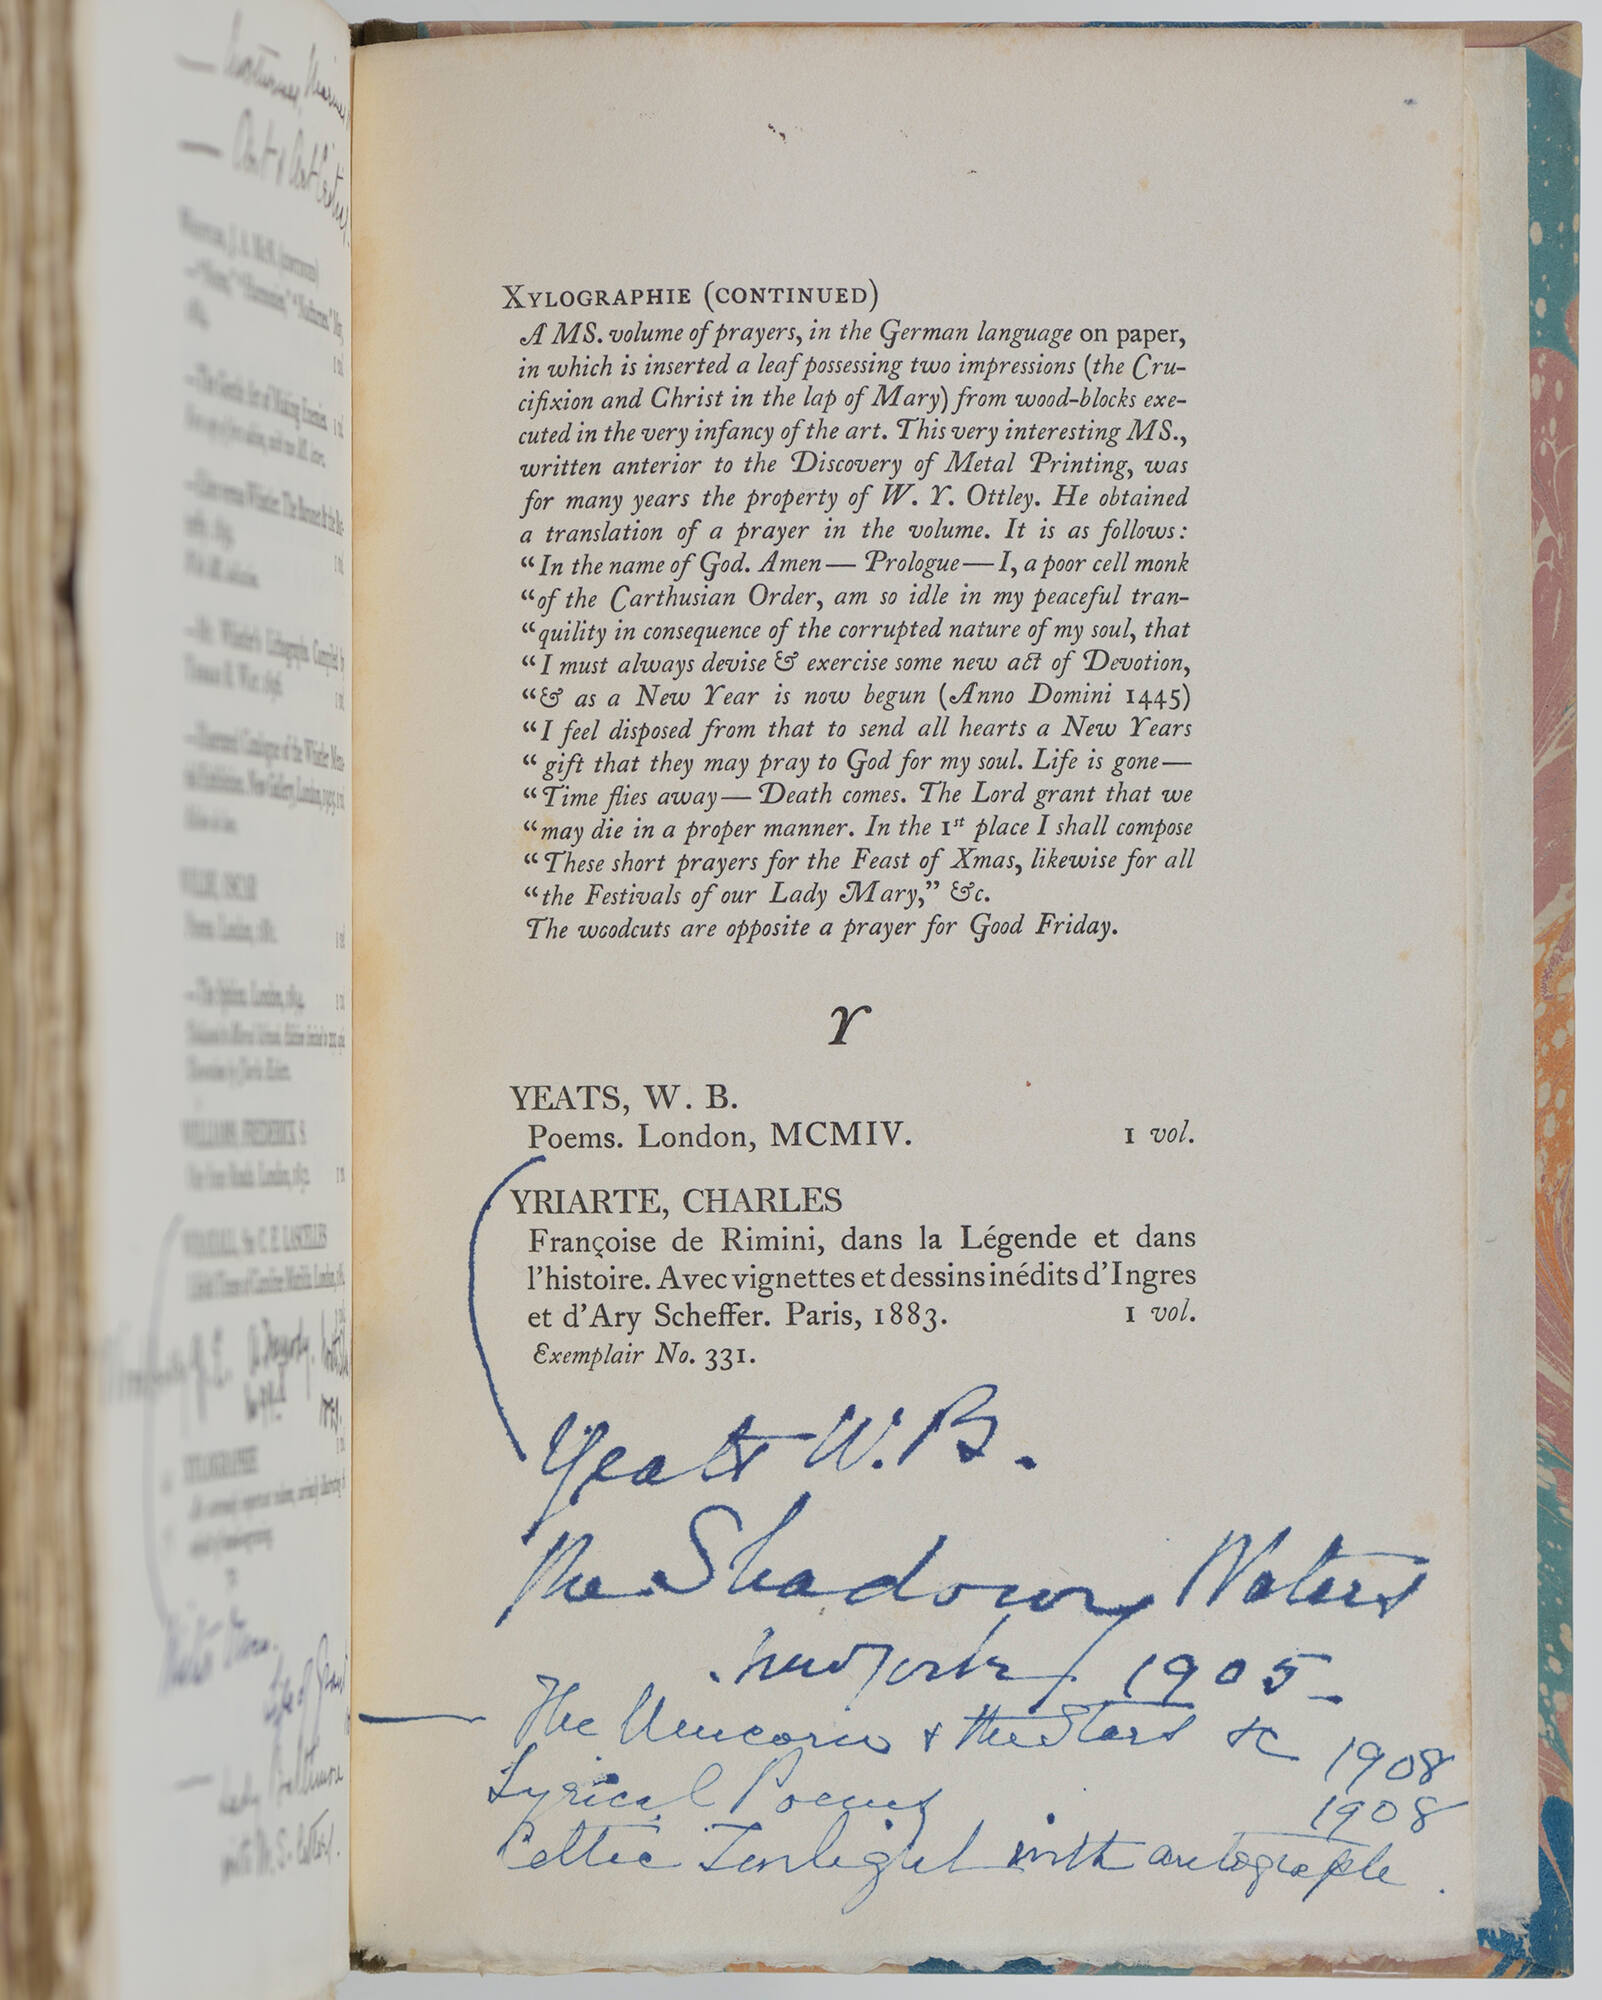 WHISTLER, J. A. McN. (CONTINUED)
—The Gentle Art of Making Enemies. 1 vol
—Mr. Whistler's Lithographs. Compiled by
Thomas R. Way. 1896.
WILDE, OSCAR
Poems. London, 1881.
—The Sphinx. London, 1894.
WILLIAMS, FREDERICK S.
XYLOGRAPHIE
XYLOGRAPHIE (CONTINUED)
A MS. volume of prayers, in the German language on paper,
in which is inserted a leaf possessing two impressions (the Cru-
cifixion and Christ in the lap of Mary) from wood-blocks exe-
cuted in the very infancy of the art. This very interesting MS.,
written anterior to the Discovery of Metal Printing, was
for many years the property of W. Y. Ottley. He obtained
a translation of a prayer in the volume. It is as follows:
“In the name of God. Amen— Prologue—I, a poor cell monk
“of the Carthusian Order, am so idle in my peaceful tran-
“quility in consequence of the corrupted nature of my soul, that
“I must always devise & exercise some new act of Devotion,
“& as a New Year is now begun (Anno Domini 1445)
“I feel disposed from that to send all hearts a New Years
“gift that they may pray to God for my soul. Life is gone—
“Time flies away—Death comes. The Lord grant that we
“may die in a proper manner. In the 1st place I shall compose
“These short prayers for the Feast of Xmas, likewise for all
“the Festivals of our Lady Mary,” &c.
The woodcuts are opposite a prayer for Good Friday.
Y
YEATS, W. B.
Poems. London, MCMIV. 1 vol.
YRIARTE, CHARLES
Françoise de Rimini, dans la Légende et dans
l'histoire. Avec vignettes et dessins inédits d'Ingres
et d'Ary Scheffer. Paris, 1883. 1 vol.
Exemplair No. 331.
Yeats W. B.
The Shadowy Waters
New York 1905
— The Unicorn & the Stars &c 1908
Lyrical Poems 1908
Celtic Twilight with autograph.